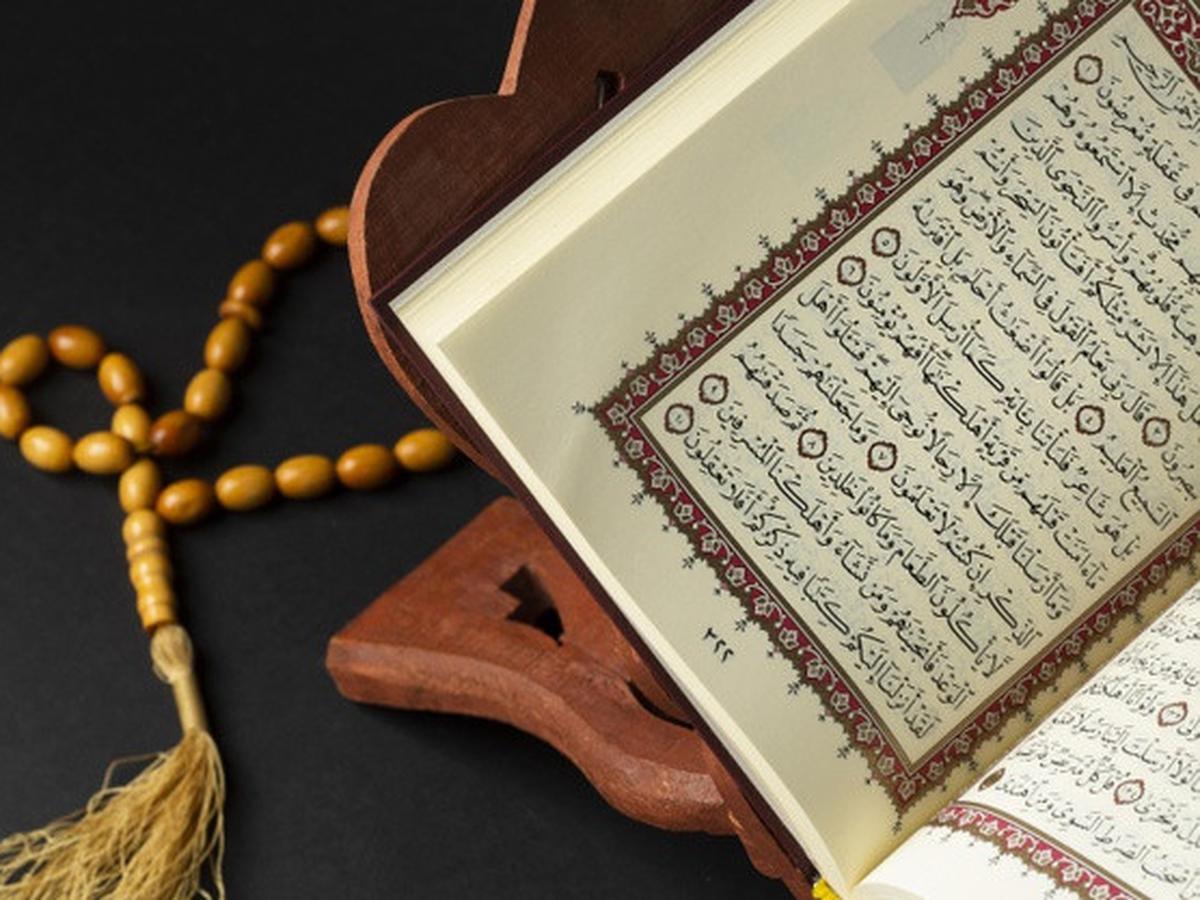 الرَّحْمَٰنِ الرَّحِيمِ
فِي غَفْلَةٍ مُّعْرِضُونَ ١
مُّحْدَثٍ إِلَّا اسْتَمَعُوهُ وَهُمْ
قُلُوبُهُمْ وَأَسَرُّوا النَّجْوَى الَّذِينَ
هَلْ هَٰذَا إِلَّا بَشَرٌ مِّثْلُكُمْ أَفَتَأْتُونَ السِّحْرَ وَأَنتُمْ
تُبْصِرُونَ ٣ قَالَ رَبِّي يَعْلَمُ الْقَوْلَ فِي السَّمَاءِ وَالْأَرْضِ وَهُوَ
السَّمِيعُ الْعَلِيمُ ٤ بَلْ قَالُوا أَضْغَاثُ أَحْلَامٍ بَلِ افْتَرَاهُ
بَلْ هُوَ شَاعِرٌ فَلْيَأْتِنَا بِآيَةٍ كَمَا أُرْسِلَ الْأَوَّلُونَ ٥
مَا آمَنَتْ قَبْلَهُم مِّن قَرْيَةٍ أَهْلَكْنَاهَا أَفَهُمْ يُؤْمِنُونَ ٦
وَمَا أَرْسَلْنَا قَبْلَكَ إِلَّا رِجَالًا نُّوحِي إِلَيْهِمْ فَاسْأَلُوا أَهْلَ
الذِّكْرِ إِن كُنتُمْ لَا تَعْلَمُونَ ٧ وَمَا جَعَلْنَاهُمْ جَسَدًا
لَّا يَأْكُلُونَ الطَّعَامَ وَمَا كَانُوا خَالِدِينَ ٨ ثُمَّ صَدَقْنَاهُمُ
الْوَعْدَ فَأَنجَيْنَاهُمْ وَمَن نَّشَاءُ وَأَهْلَكْنَا الْمُسْرِفِينَ ٩
لَقَدْ أَنزَلْنَا إِلَيْكُمْ كِتَابًا فِيهِ ذِكْرُكُمْ أَفَلَا تَعْقِلُونَ ١٠
٣٢٢
لَوْلَا أَرْسَلْتَ إِلَيْنَا رَسُولًا فَنَتَّبِعَ
وَنَخْزَىٰ ١٣٤ قُلْ كُلٌّ مُّتَرَبِّصٌ فَتَرَبَّصُوا
أَصْحَابُ الصِّرَاطِ السَّوِيِّ وَمَنِ اهْتَدَىٰ ١٣٥